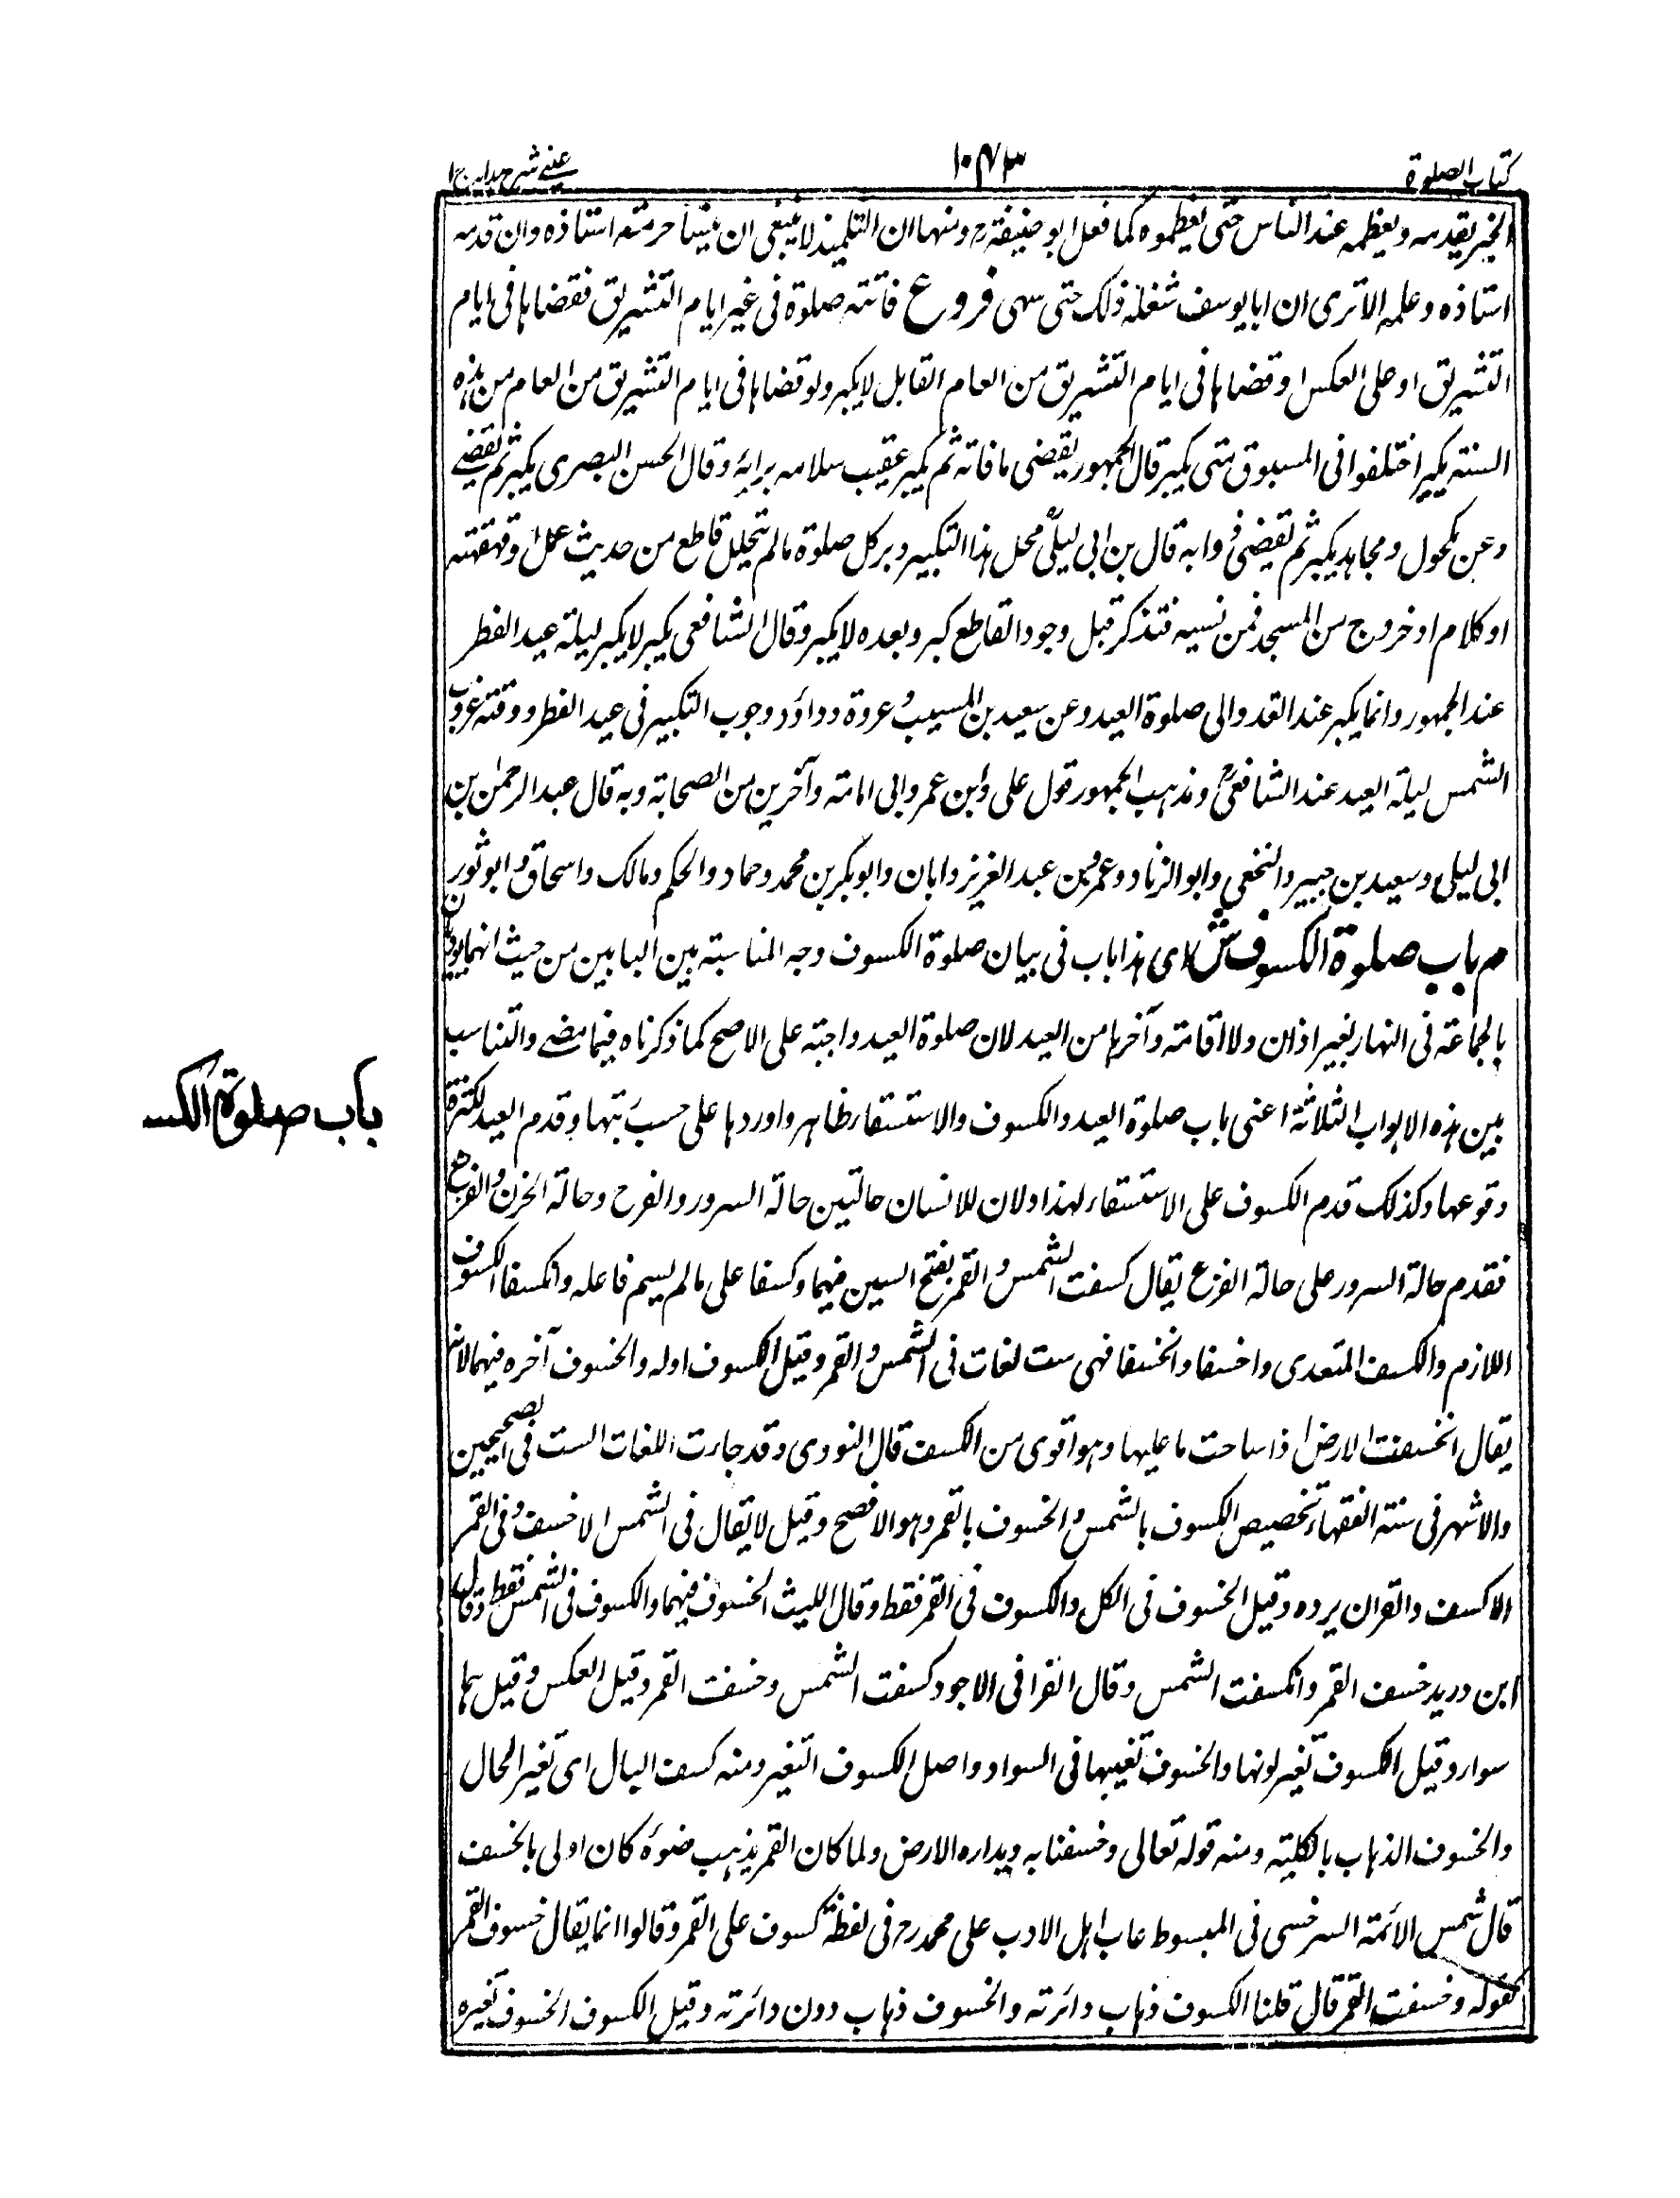 كتاب الصلوة
١٠٤٣
عينى شرح هدايه ج ١
الخير يقدمه ويعظمه عند الناس حتى يعظموه كما فعل ابو حنيفة رح ومنها ان التلميذ لا ينبغى ان ينسأ حرمته استاذه وان قدمه
استاذه وعلمه الا ترى ان ابا يوسف شغله ذلك حتى سهى فروع فاتته صلوة فى غير ايام التشريق فقضاها فى ايام
التشريق او على العكس او قضاها فى ايام التشريق من العام القابل لا يكبر ولو قضاها فى ايام التشريق من العام من هذه
السنة يكبر اختلفوا فى المسبوق متى يكبر قال الجمهور يقضى ما فاته ثم يكبر عقيب سلامه برايه وقال الحسن البصرى يكبر ثم يقضى
وعن مكحول ومجاهد يكبر ثم يقضى وابه قال بن ابى ليلى محل هذا التكبير دبر كل صلوة ما لم يتخلل قاطع من حديث عمل وقهقهته
او كلام او خروج من المسجد فمن نسيه فتذكر قبل وجود القاطع كبر وبعده لا يكبر وقال الشافعى يكبر لا يكبر ليلة عيد الفطر
عند الجمهور وانما يكبر عند الغدو الى صلوة العيد وعن سعيد بن المسيب وعروة وداؤد وجوب التكبير فى عيد الفطر ووقته غروب
الشمس ليلة العيد عند الشافعى ومذهب الجمهور قول على وابن عمر وابى امامة وآخرين من الصحابة وبه قال عبد الرحمن بن
ابى ليلى وسعيد بن جبير والنخعى وابو الزناد وعمرو بن عبد العزيز وابان وابو بكر بن محمد وحماد والحكم ومالك واسحاق وابو ثور
م باب صلوة الكسوف ش اى هذا باب فى بيان صلوة الكسوف وجه المناسبة بين البابين من حيث انهما يوديان
بالجماعة فى النهار بغير اذان ولا اقامة وآخرها من العيد لان صلوة العيد واجبة على الاصح كما ذكرناه فيما مضى والتناسب
بين هذه الابواب الثلاثة اعنى باب صلوة العيد والكسوف والاستسقاء ظاهر واوردها على حسب رتبتها وقدم العيد لكثرة
وقوعها وكذلك قدم الكسوف على الاستسقاء لهذا ولان للانسان حالتين حالة السرور والفرح وحالة الحزن والفزع
فقدم حالة السرور على حالة الفزع يقال كسفت الشمس والقمر بفتح السين فيهما وكسفا على ما لم يسم فاعله وانكسفا الكسوف
اللازم والكسف المتعدى واخسفا وانخسفا فهى ست لغات فى الشمس والقمر وقيل الكسوف اوله والخسوف آخره فيهما لانه
يقال انخسفت الارض اذا ساحت ما عليها وهو اقوى من الكسف قال النووى وقد جاءت اللغات الست فى الصحيحين
والاشهر فى سنة الفقهاء تخصيص الكسوف بالشمس والخسوف بالقمر وهو الافصح وقيل لا يقال فى الشمس الا خسف وفى القمر
الا كسف والقران يرده وقيل الخسوف فى الكل والكسوف فى القمر فقط وقال الليث الخسوف فيهما والكسوف فى الشمس فقط وقال
ابن دريد خسف القمر وانكسفت الشمس وقال الفرا فى الاجود كسفت الشمس وخسفت القمر وقيل العكس وقيل هما
سواء وقيل الكسوف تغير لونها والخسوف تغيبها فى السواد واصل الكسوف التغير ومنه كسف البال اى تغير الحال
والخسوف الذهاب بالكلية ومنه قوله تعالى وخسفنا به وبداره الارض ولما كان القمر يذهب ضوءه كان اولى بالخسف
قال شمس الائمة السرخسى فى المبسوط عاب اهل الادب على محمد رح فى لفظة كسوف على القمر وقالوا انما يقال خسوف القمر
كقوله وخسفت القمر قال قلنا الكسوف ذهاب دائرته والخسوف ذهاب دون دائرته وقيل الكسوف الخسوف تغيره
باب صلوة الكسـ